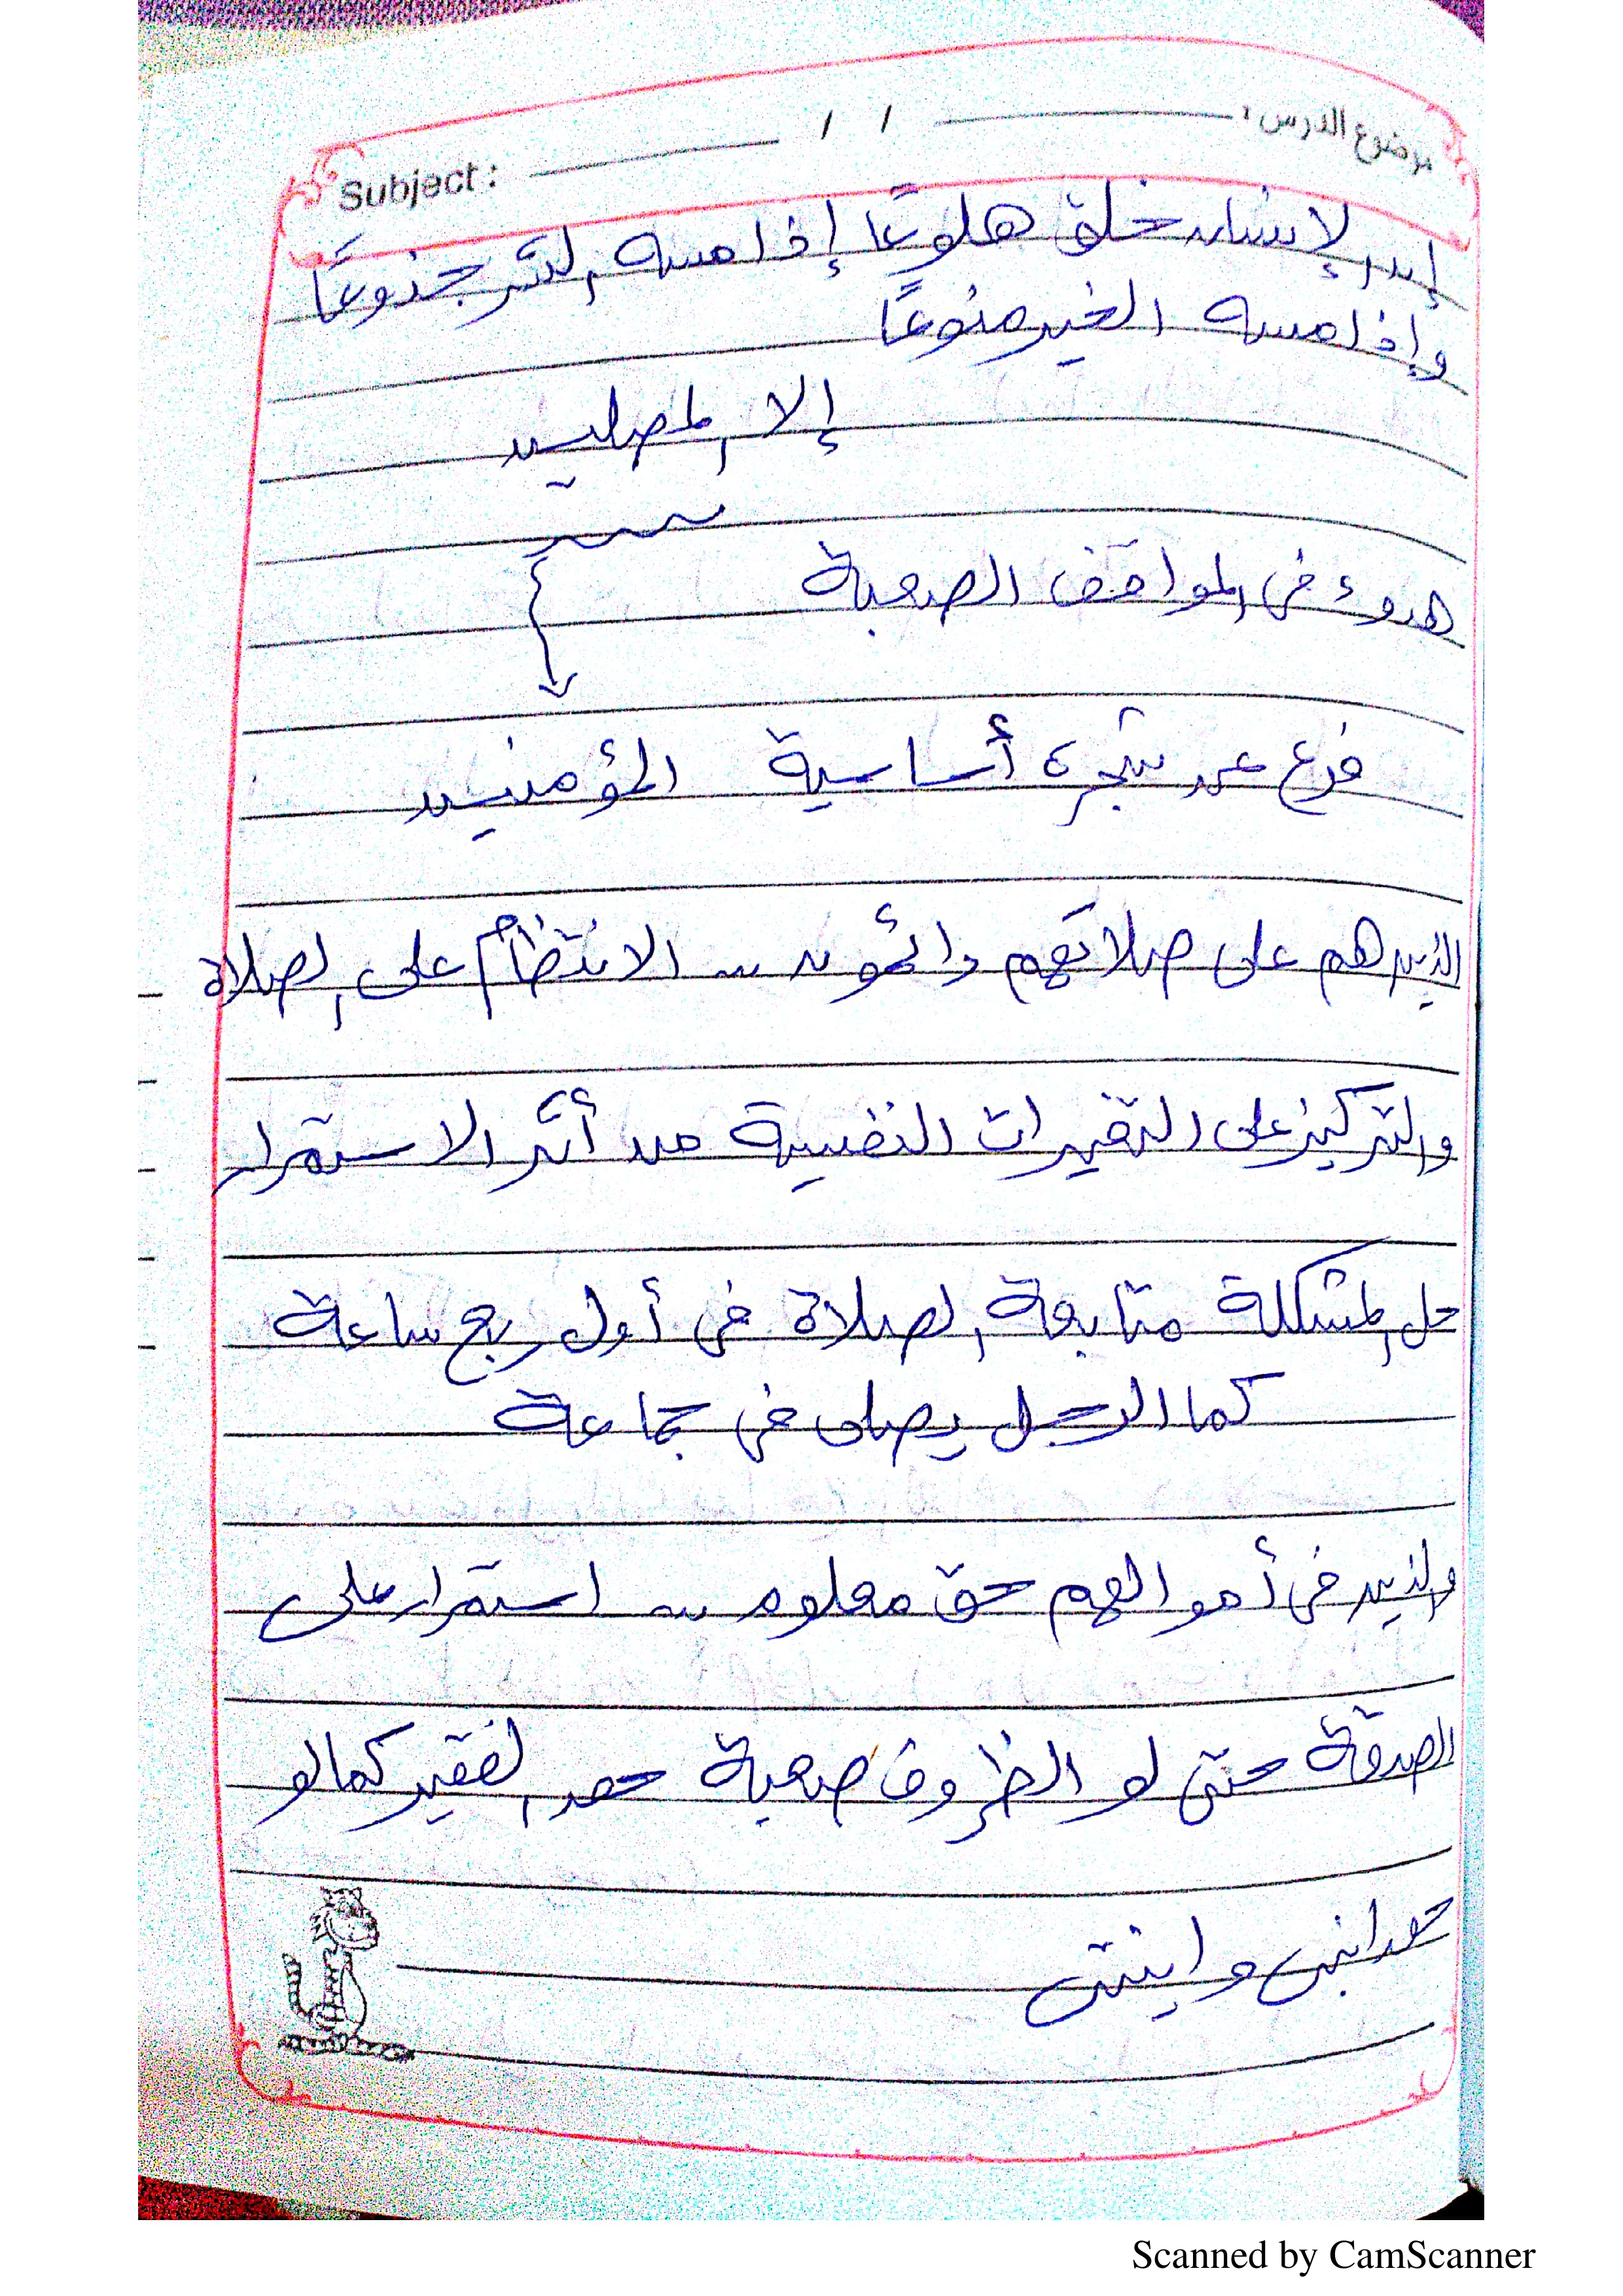 موضوع الدرس :
/ /
Subject :
إن الإنسان خلق هلوعًا إذا مسه الشر جذوعًا
وإذا مسه الخير منوعًا
إلا المصلين
هدوء فى المواقف الصعبة
فرع عن شجرة أساسية المؤمنين
الذين هم على صلاتهم دائمون الانتظام على الصلاة
والتركيز على التغيرات النفسية من أثر الاستمرار
حل المشكلة متابعة الصلاة فى أول ربع ساعة
كما الرجل يصلى فى جماعة
والذين فى أموالهم حق معلوم استمرار على
الصدقة حتى لو الظروف صعبة حق الفقير كما لو
حق ابنى وابنتى
Scanned by CamScanner